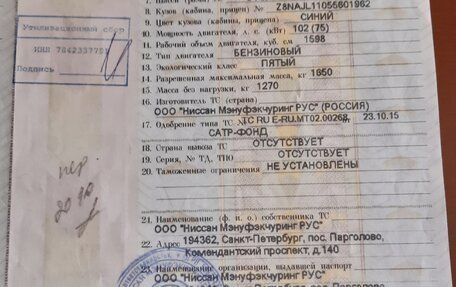 8. Кузов (кабина, прицеп) № Z8NAJL11055601962
9. Цвет кузова (кабины, прицепа) СИНИЙ
10. Мощность двигателя, л. с. (кВт) 102 (75)
11. Рабочий объем двигателя, куб. см 1598
12. Тип двигателя БЕНЗИНОВЫЙ
13. Экологический класс ПЯТЫЙ
14. Разрешенная максимальная масса, кг 1650
15. Масса без нагрузки, кг 1270
16. Изготовитель ТС (страна)
ООО "Ниссан Мэнуфэкчуринг РУС" (РОССИЯ)
17. Одобрение типа ТС № ТС RU E-RU.MT02.00268, 23.10.15
САТР-ФОНД
18. Страна вывоза ТС ОТСУТСТВУЕТ
19. Серия, № ТД, ТПО ОТСУТСТВУЕТ
20. Таможенные ограничения НЕ УСТАНОВЛЕНЫ
21. Наименование (ф. и. о.) собственника ТС
ООО "Ниссан Мэнуфэкчуринг РУС"
22. Адрес 194362, Санкт-Петербург, пос. Парголово,
Комендантский проспект, д.140
23. Наименование организации, выдавшей паспорт
ООО "Ниссан Мэнуфэкчуринг РУС"
Утилизационный сбор
ИНН 7842337791
Подпись